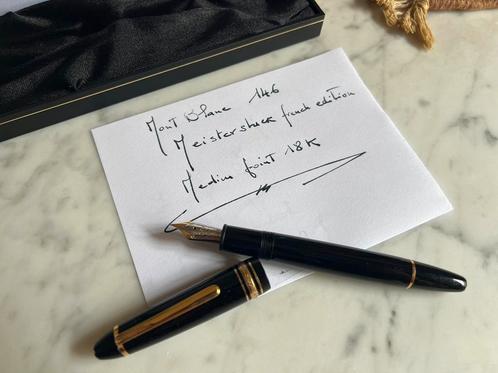 Mont Blanc 146
Meisterstuck french edition
Medium point 18K